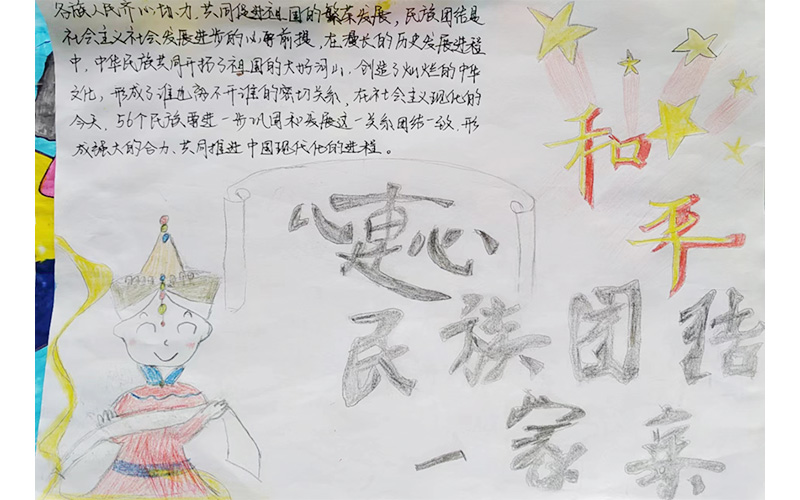 各族人民齐心协力、共同促进祖国的繁荣发展,民族团结是
社会主义社会发展进步的必要前提,在漫长的历史发展进程
中,中华民族共同开拓了祖国的大好河山,创造了灿烂的中华
文化,形成了谁也离不开谁的密切关系,在社会主义现代化的
今天,56个民族要进一步巩固和发展这一关系团结一致,形
成强大的合力、共同推进中国现代化的进程。
和平
心连心
民族团结
一家亲